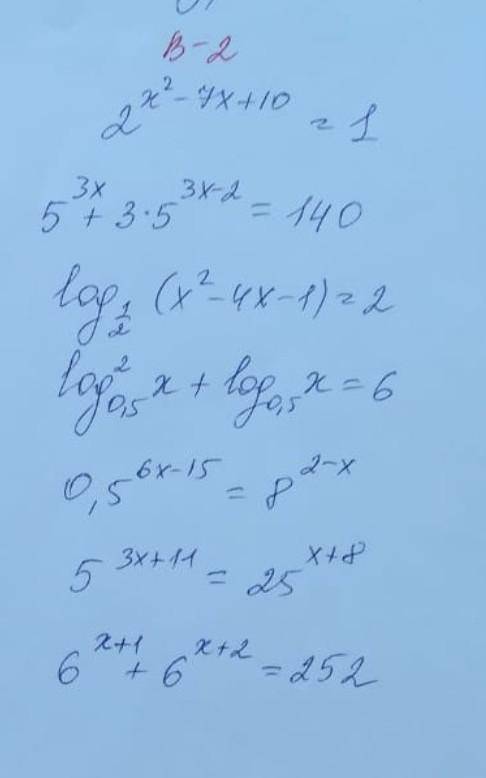 В-2
2^{x²-7x+10} = 1
5^{3x} + 3·5^{3x-2} = 140
log_{1/2} (x²-4x-1) = 2
log²_{0,5} x + log_{0,5} x = 6
0,5^{6x-15} = 8^{2-x}
5^{3x+11} = 25^{x+8}
6^{x+1} + 6^{x+2} = 252